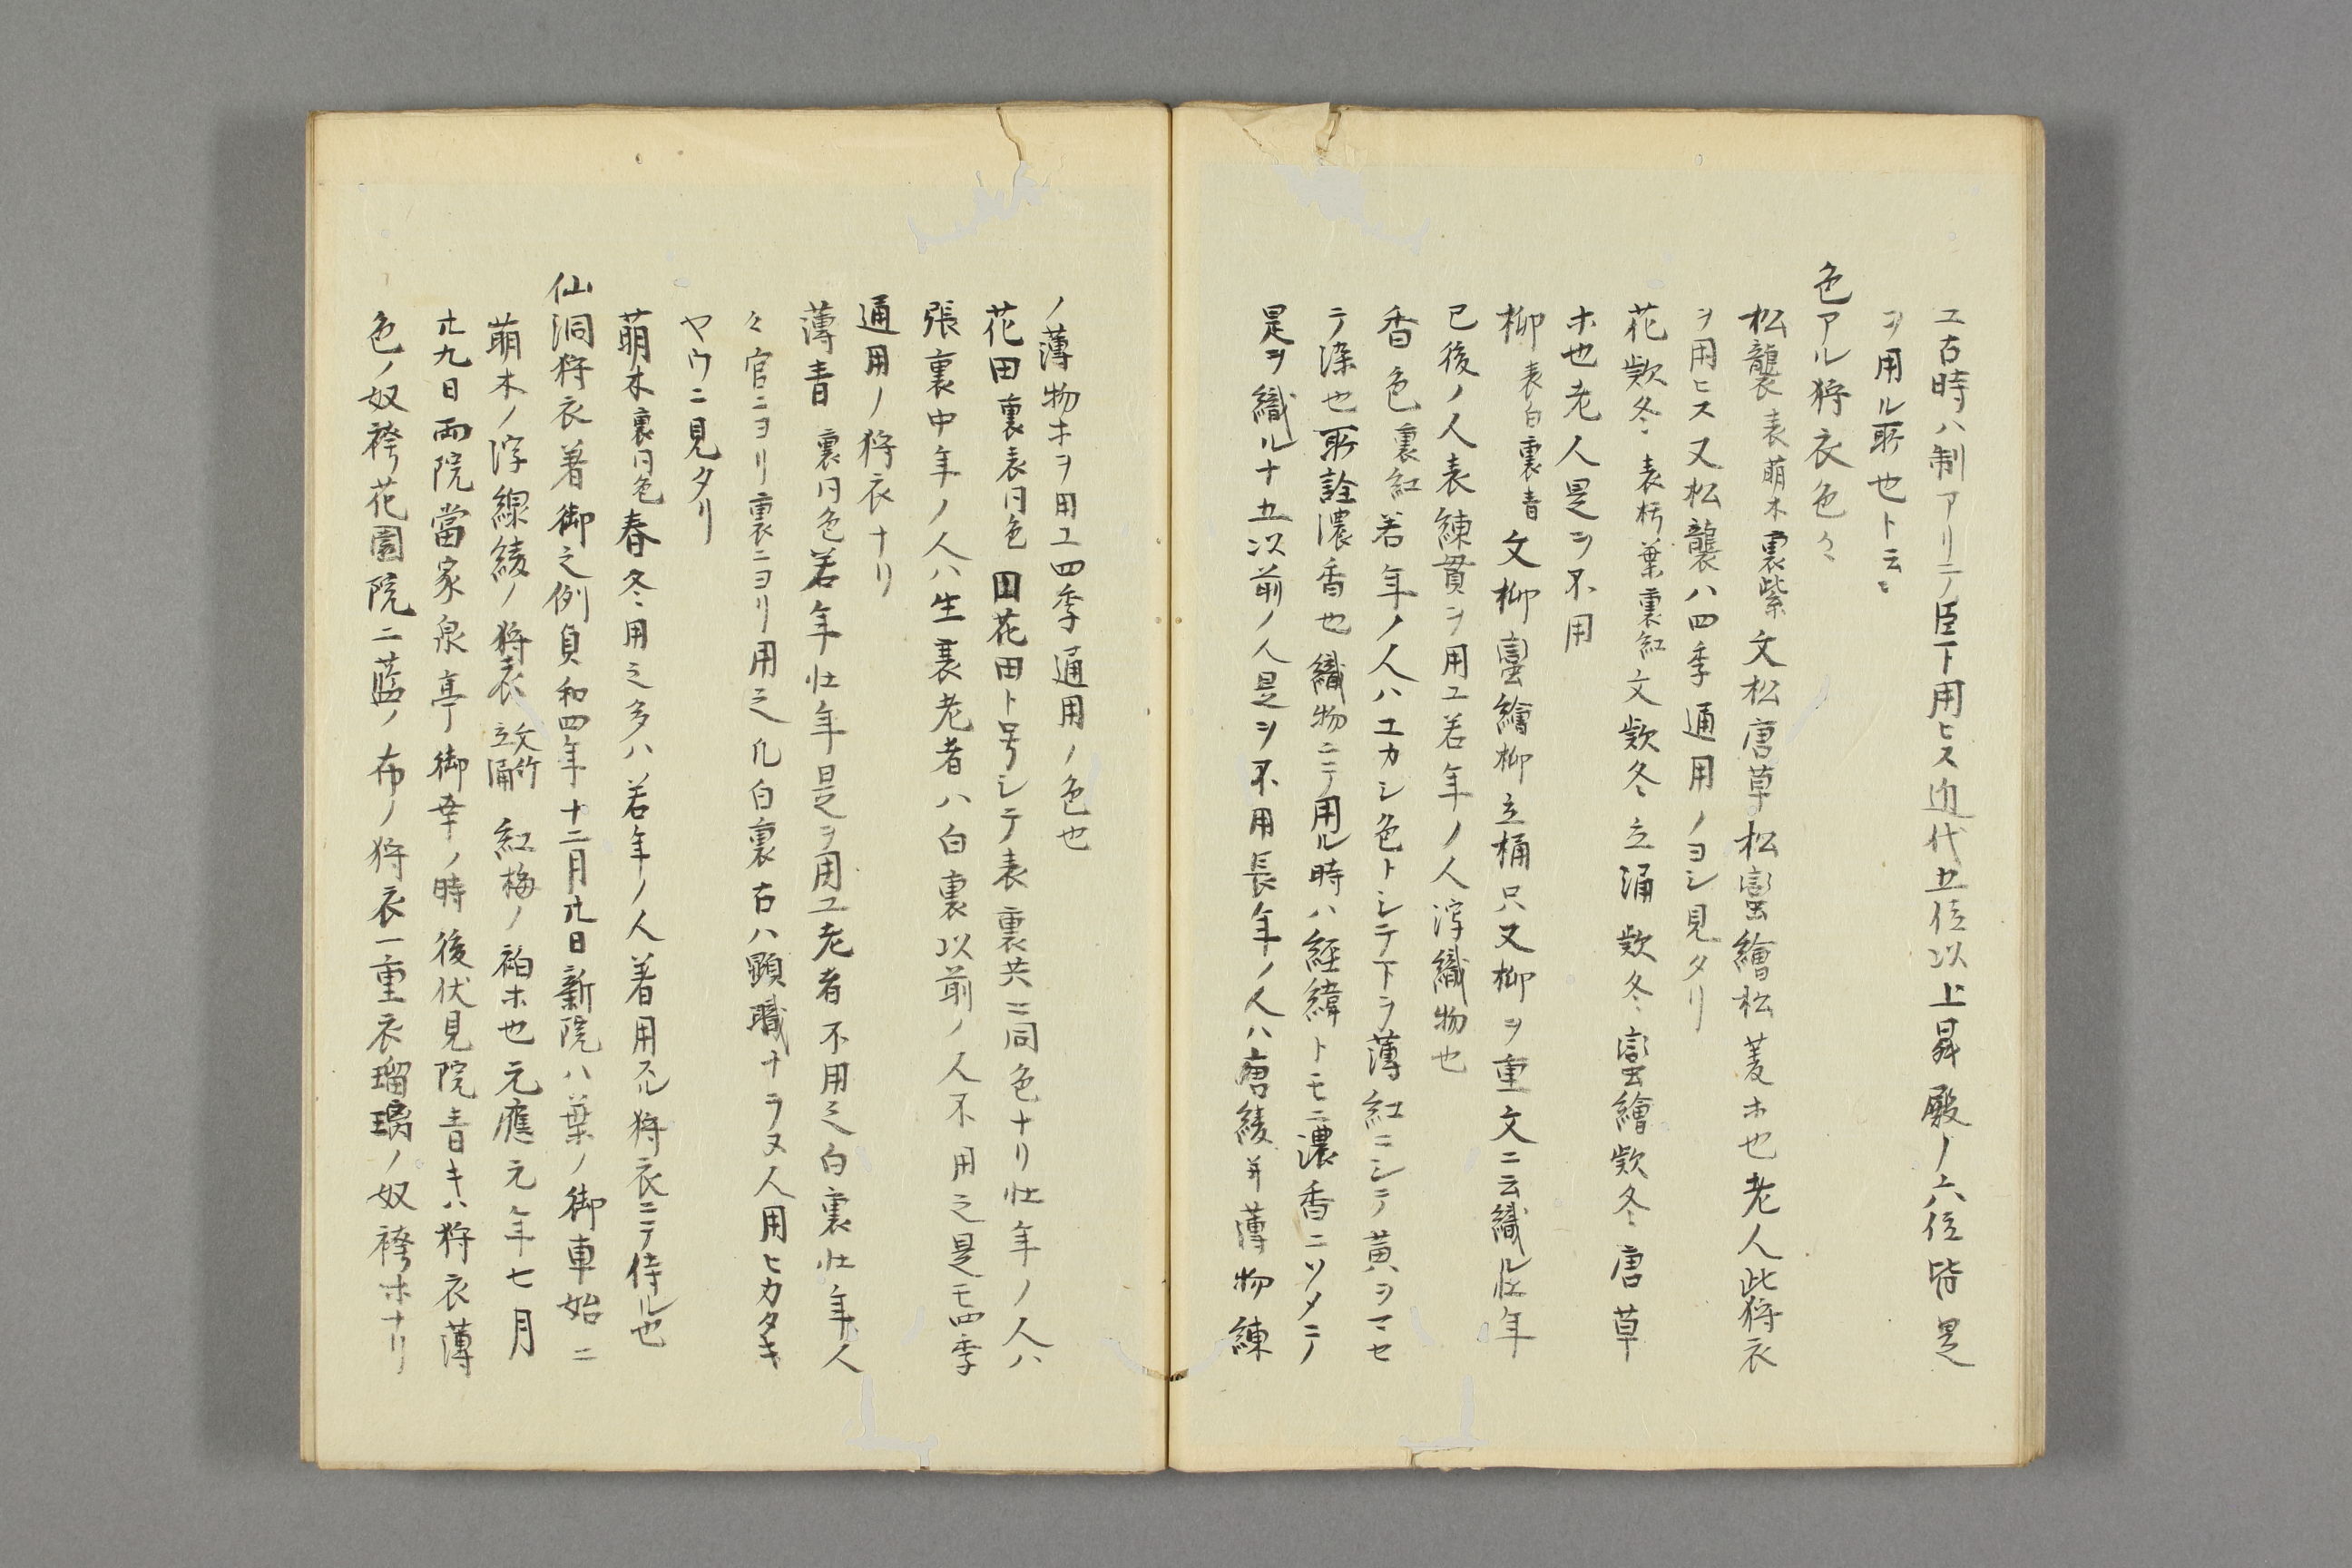 ユ古時ハ制アリテ臣下用ヒス近代五位以上昇殿ノ六位皆是
ヲ用ル所也ト云々
色アル狩衣色々
松襲表萌木裏紫文松唐草松蛮繪松菱ホ也老人此狩衣
ヲ用ヒス又松襲ハ四季通用ノヨシ見タリ
花欵冬表朽葉裏紅文欵冬立涌欵冬蛮繪欵冬唐草
ホ也老人是ヲ不用
柳表白裏青文柳蛮繪柳立桶只又柳ヲ重文ニ云織ル壮年
已後ノ人表練貫ヲ用ユ若年ノ人浮織物也
香色裏紅若年ノ人ハユカシ色トシテ下ヲ薄紅ニシテ黄ヲマセ
テ染也所詮濃香也織物ニテ用ル時ハ経緯トモニ濃香ニソメテ
是ヲ織ル十五以前ノ人是ヲ不用長年ノ人ハ唐綾并薄物練
ノ薄物ホヲ用ユ四季通用ノ色也
花田裏表同色田花田ト号シテ表裏共ニ同色ナリ壮年ノ人ハ
張裏中年ノ人ハ生裏老者ハ白裏以前ノ人不用之是モ四季
通用ノ狩衣ナリ
薄青裏同色若年壮年是ヲ用ユ老者不用之白裏壮年人
々官ニヨリ裏ニヨリ用之凡白裏古ハ顕職ナラヌ人用ヒカタキ
ヤウニ見タリ
萌木裏同色春冬用之多ハ若年ノ人着用ル狩衣ニテ侍ル也
仙洞狩衣著御之例貞和四年十二月廿日新院ハ葉ノ御車始ニ
萌木ノ浮線綾ノ狩衣文竹立涌紅梅ノ衵ホ也元應元年七月
廿九日両院當家泉亭御幸ノ時後伏見院青キハ狩衣薄
色ノ奴袴花園院二藍ノ布ノ狩衣一重衣瑠璃ノ奴袴ホナリ